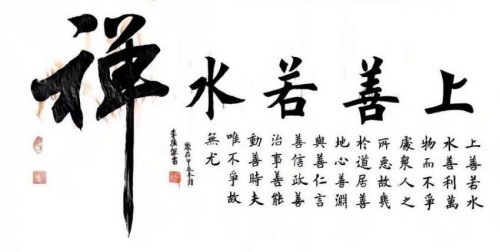 上善若水
上善若水
水善利萬
物而不爭
處衆人之
所惡故幾
於道居善
地心善淵
與善仁言
善信政善
治事善能
動善時夫
唯不爭故
無尤
歲在甲辰冬月
禅